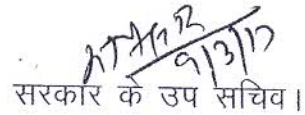 9/3/17
सरकार के उप सचिव।